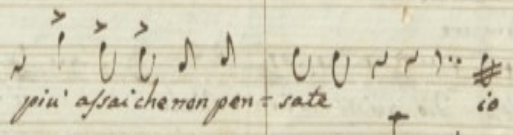 piu' assai che non pen = sate io